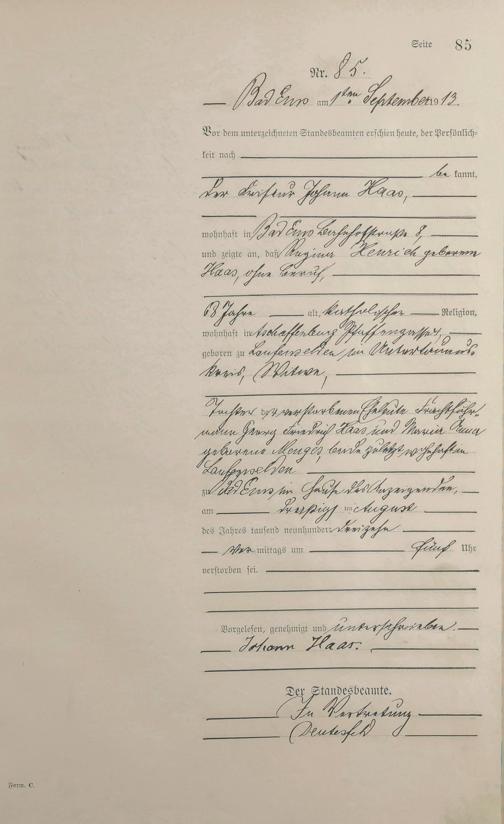 Seite 85
Nr. 85.
Bad Ems am 1ten September 1913.
Vor dem unterzeichneten Standesbeamten erschien heute, der Persönlich-
keit nach
be kannt,
der Friseur Johann Haas,
wohnhaft in Bad Ems Bahnhofstraße 8,
und zeigte an, daß Regina Henrich geborene
Haas, ohne Beruf,
68 Jahre alt, katholischer Religion,
wohnhaft in Aschaffenburg Pfaffengasse,
geboren zu Laufenselden im Untertaunus
kreis, Witwe,
Tochter der verstorbenen Eheleute
Georg Friedrich Haas und Maria Anna
geborene Menges, beide zuletzt wohnhaft in
Laufenselden
zu Bad Ems im Hause des Anzeigenden,
am dreißigsten August
des Jahres tausend neunhundert dreizehn
Vor mittags um fünf Uhr
verstorben sei.
Vorgelesen, genehmigt und unterschrieben.
Johann Haas.
Der Standesbeamte.
In Vertretung
Form. C.